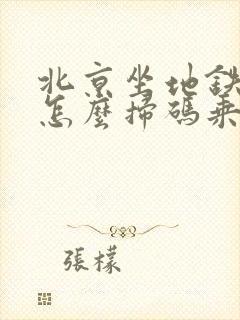 北京坐地鉄
怎麼掃碼乘
張檬